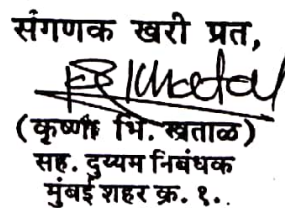 संगणक खरी प्रत,
(कृष्णा भि. खताळ)
सह. दुय्यम निबंधक
मुंबई शहर क्र. १.